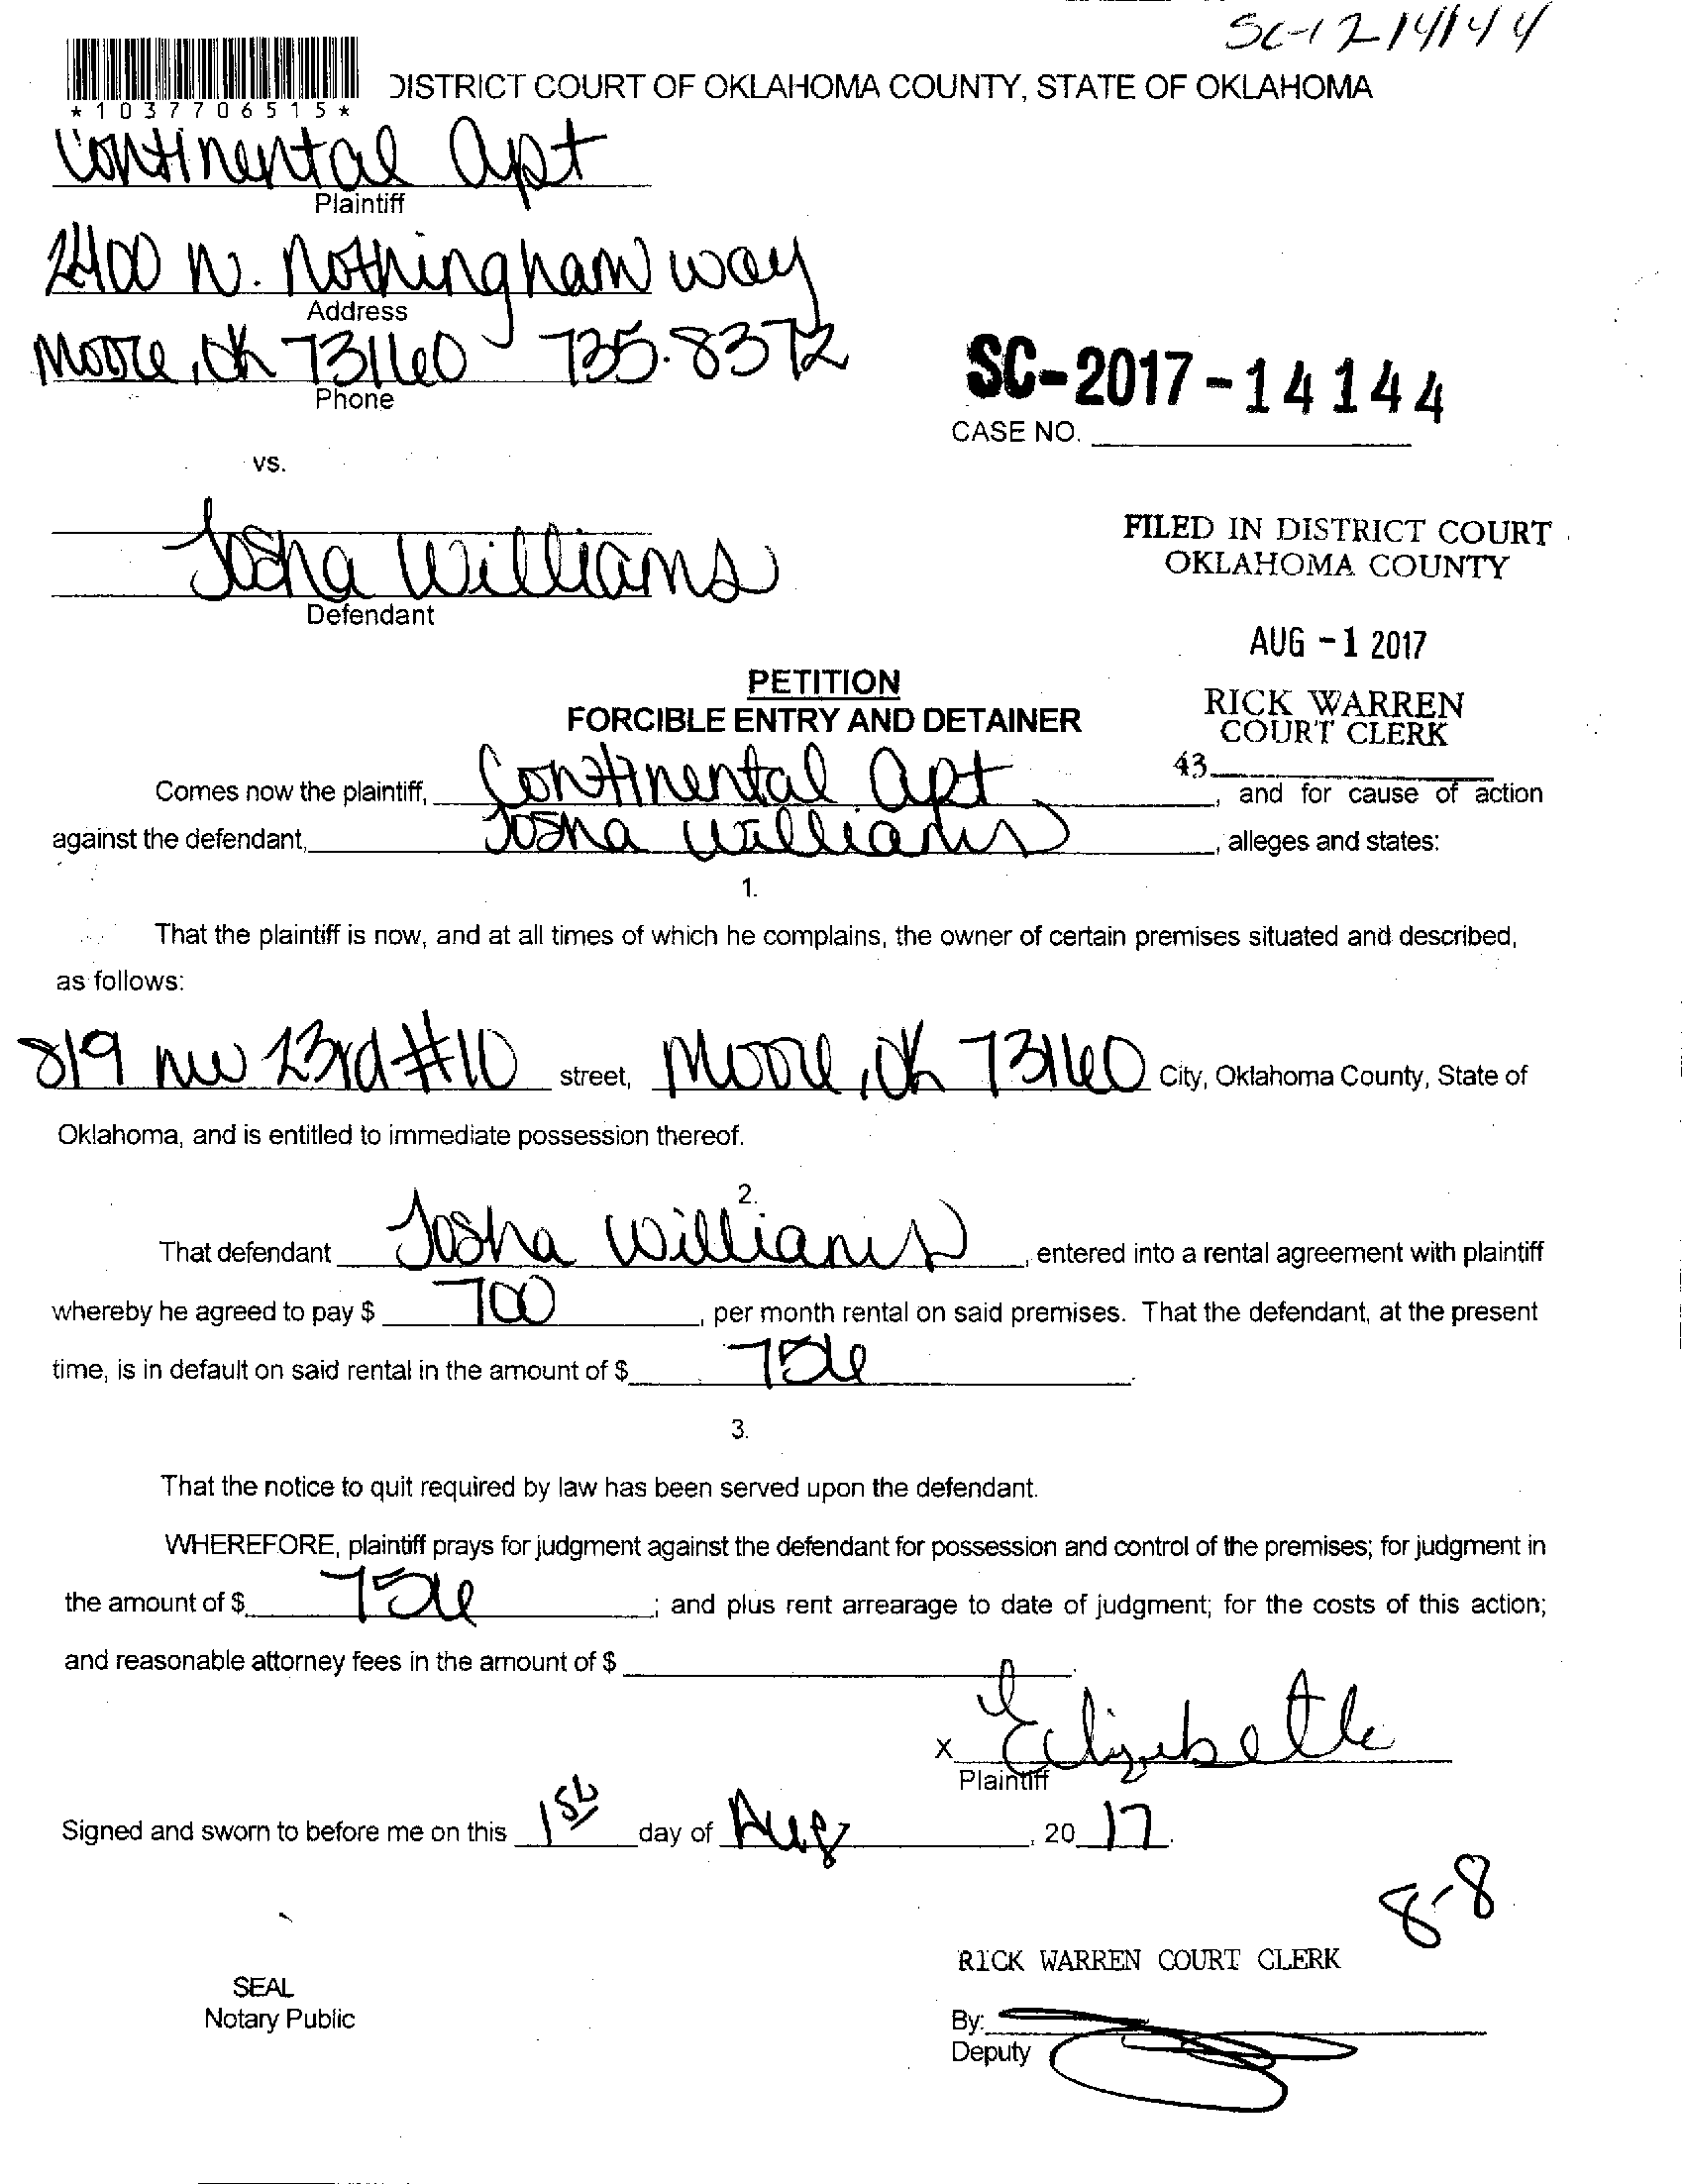 SC-17-14144
*1037706515*
DISTRICT COURT OF OKLAHOMA COUNTY, STATE OF OKLAHOMA
Continental Apt
Plaintiff
2400 N. Nothingham way
Address
Moore, Ok 73160 735.8372
Phone
SC-2017-14144
CASE NO.
vs.
FILED IN DISTRICT COURT
OKLAHOMA COUNTY
Williams
Defendant
AUG -1 2017
PETITION
FORCIBLE ENTRY AND DETAINER
RICK WARREN
COURT CLERK
43
Comes now the plaintiff, Continental Apt, and for cause of action
against the defendant, Williams, alleges and states:
1.
That the plaintiff is now, and at all times of which he complains, the owner of certain premises situated and described,
as follows:
819 NW 23rd #10 street, Moore, Ok 73160 City, Oklahoma County, State of
Oklahoma, and is entitled to immediate possession thereof.
2.
That defendant Williams, entered into a rental agreement with plaintiff
whereby he agreed to pay $ 700, per month rental on said premises. That the defendant, at the present
time, is in default on said rental in the amount of $ 756.
3.
That the notice to quit required by law has been served upon the defendant.
WHEREFORE, plaintiff prays for judgment against the defendant for possession and control of the premises; for judgment in
the amount of $ 756; and plus rent arrearage to date of judgment; for the costs of this action;
and reasonable attorney fees in the amount of $
x Elizabeth
Plaintiff
Signed and sworn to before me on this 1st day of Aug, 20 17.
8-8
RICK WARREN COURT CLERK
SEAL
Notary Public
By:
Deputy